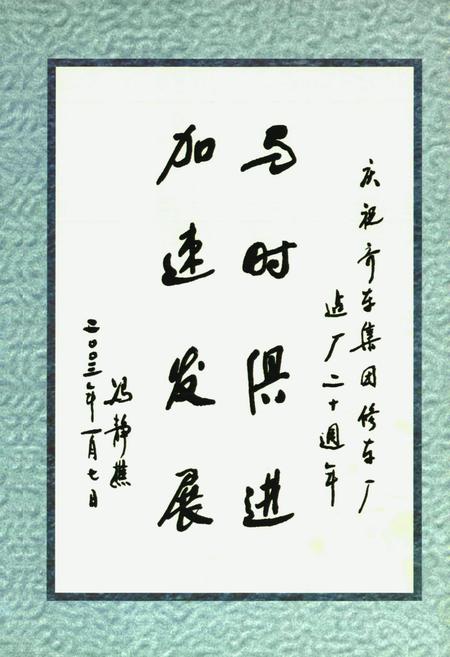 庆祝齐车集团修车厂
造厂二十週年
与时俱进
加速发展
冯静樵
二〇〇三年一月七日